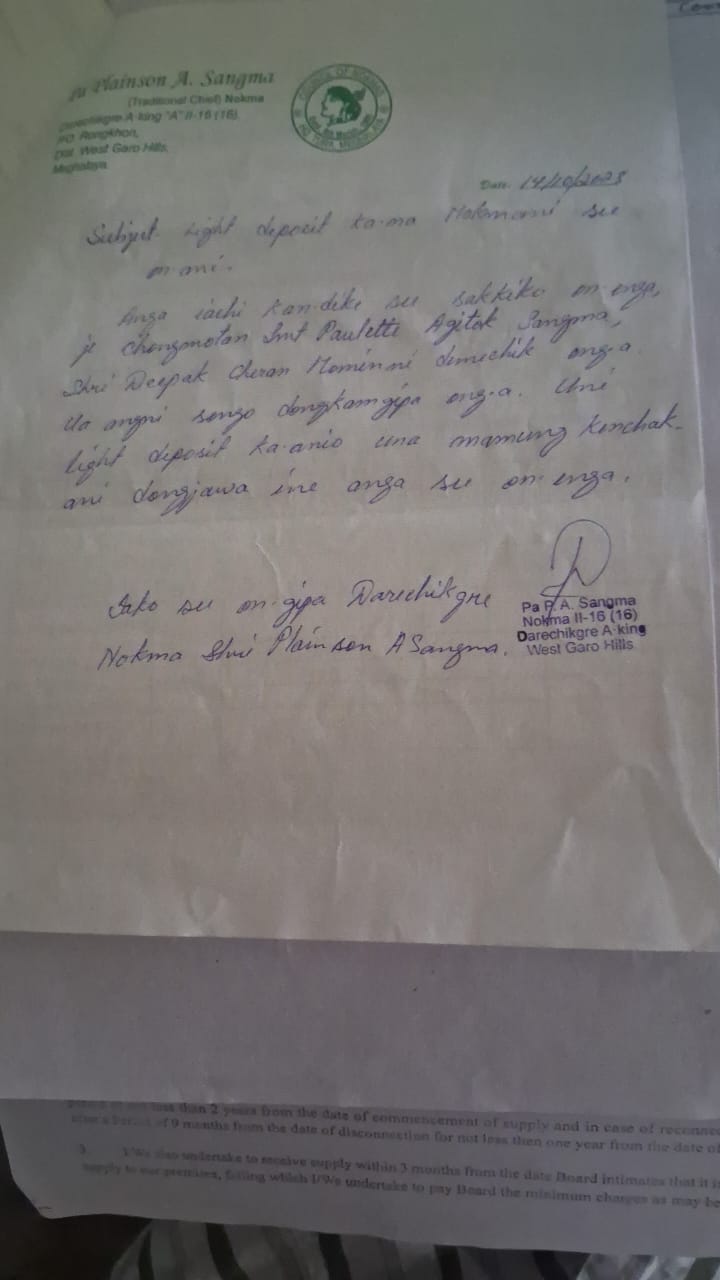 Pa Plainson A. Sangma
(Traditional Chief) Nokma
Darechikgre A·king "A" II-16 (16)
PO. Rongkhon,
Dist. West Garo Hills,
Meghalaya
COUNCIL OF NOKMA
Date. 14/10/2023
Subject. Light deposit ka·na Nokmani su
on·ani.
Anga iachi kan·dike su sakkiko on·enga,
je chongmotan Smt Paulette Agitok Sangma,
Shri Deepak Cheran Mominni demechik ong·a.
Ua angni songo dongkamgipa ong·a. Uni
light deposit ka·anio una mamung kenchak-
ani dongjawa ine anga su on·enga.
Iako su on·gipa Darechikgre
Nokma Shri Plainson A Sangma.
Pa P.A. Sangma
Nokma II-16 (16)
Darechikgre A·king
West Garo Hills
less than 2 years from the date of commencement of supply and in case of reconnec
after a Period of 9 months from the date of disconnection for not less then one year from the date of
3. I/We also undertake to receive supply within 3 months from the date Board intimates that it is
supply to our premises, failing which I/We undertake to pay Board the minimum charges as may be